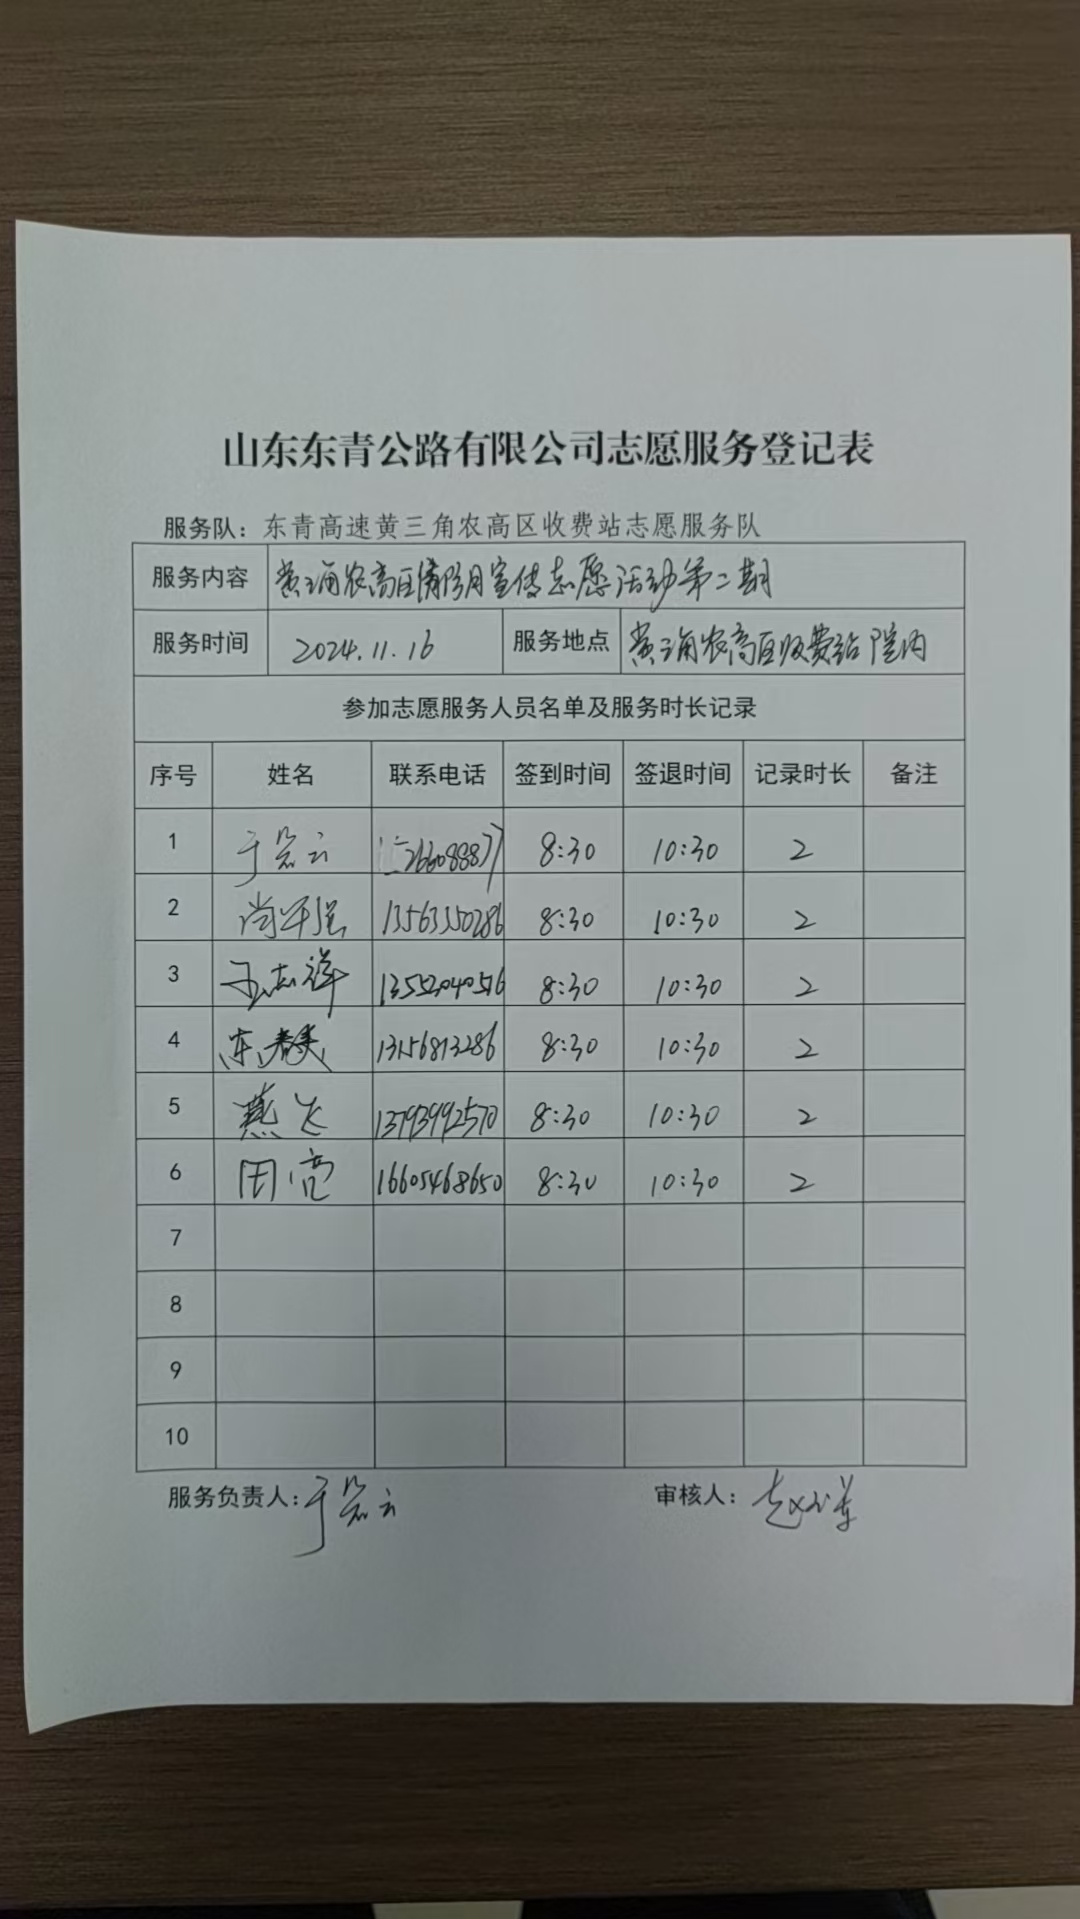 山东东青公路有限公司志愿服务登记表
服务队：东青高速黄三角农高区收费站志愿服务队
服务内容 黄三角农高区消防月宣传志愿活动第二期
服务时间 2024.11.16 服务地点 黄三角农高区收费站院内
参加志愿服务人员名单及服务时长记录
序号 姓名 联系电话 签到时间 签退时间 记录时长 备注
1 于 云 8:30 10:30 2
2 尚军强 13563350286 8:30 10:30 2
3 王志祥 8:30 10:30 2
4 13156813286 8:30 10:30 2
5 燕飞 13793992570 8:30 10:30 2
6 田亮 16605468650 8:30 10:30 2
7
8
9
10
服务负责人：于 云 审核人：赵